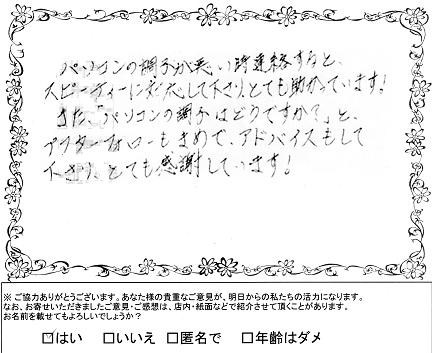 パソコンの調子が悪い時連絡すると、
スピーディーに対応して下さり、とても助かっています!
また、「パソコンの調子はどうですか?」と、
アフターフォローもまめで、アドバイスもして
下さり、とても感謝しています!
※ ご協力ありがとうございます。あなた様の貴重なご意見が、明日からの私たちの活力になります。
なお、お寄せいただきましたご意見・ご感想は、店内・紙面などで紹介させて頂くことがあります。
お名前を載せてもよろしいでしょうか?
☑はい □いいえ □匿名で □年齢はダメ